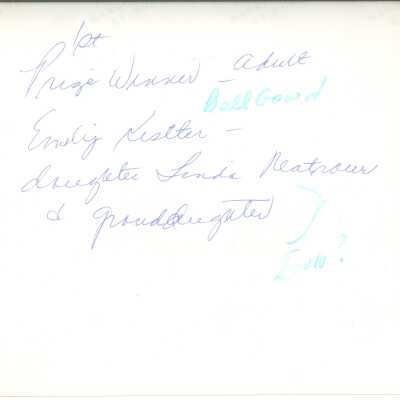 1st
Prize Winner – Adult
Ball Gown
Emily Kistler –
daughter Linda
& granddaughter